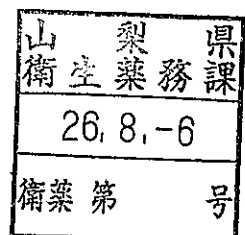 山梨県
衛生薬務課
26.8.-6
衛薬第 号